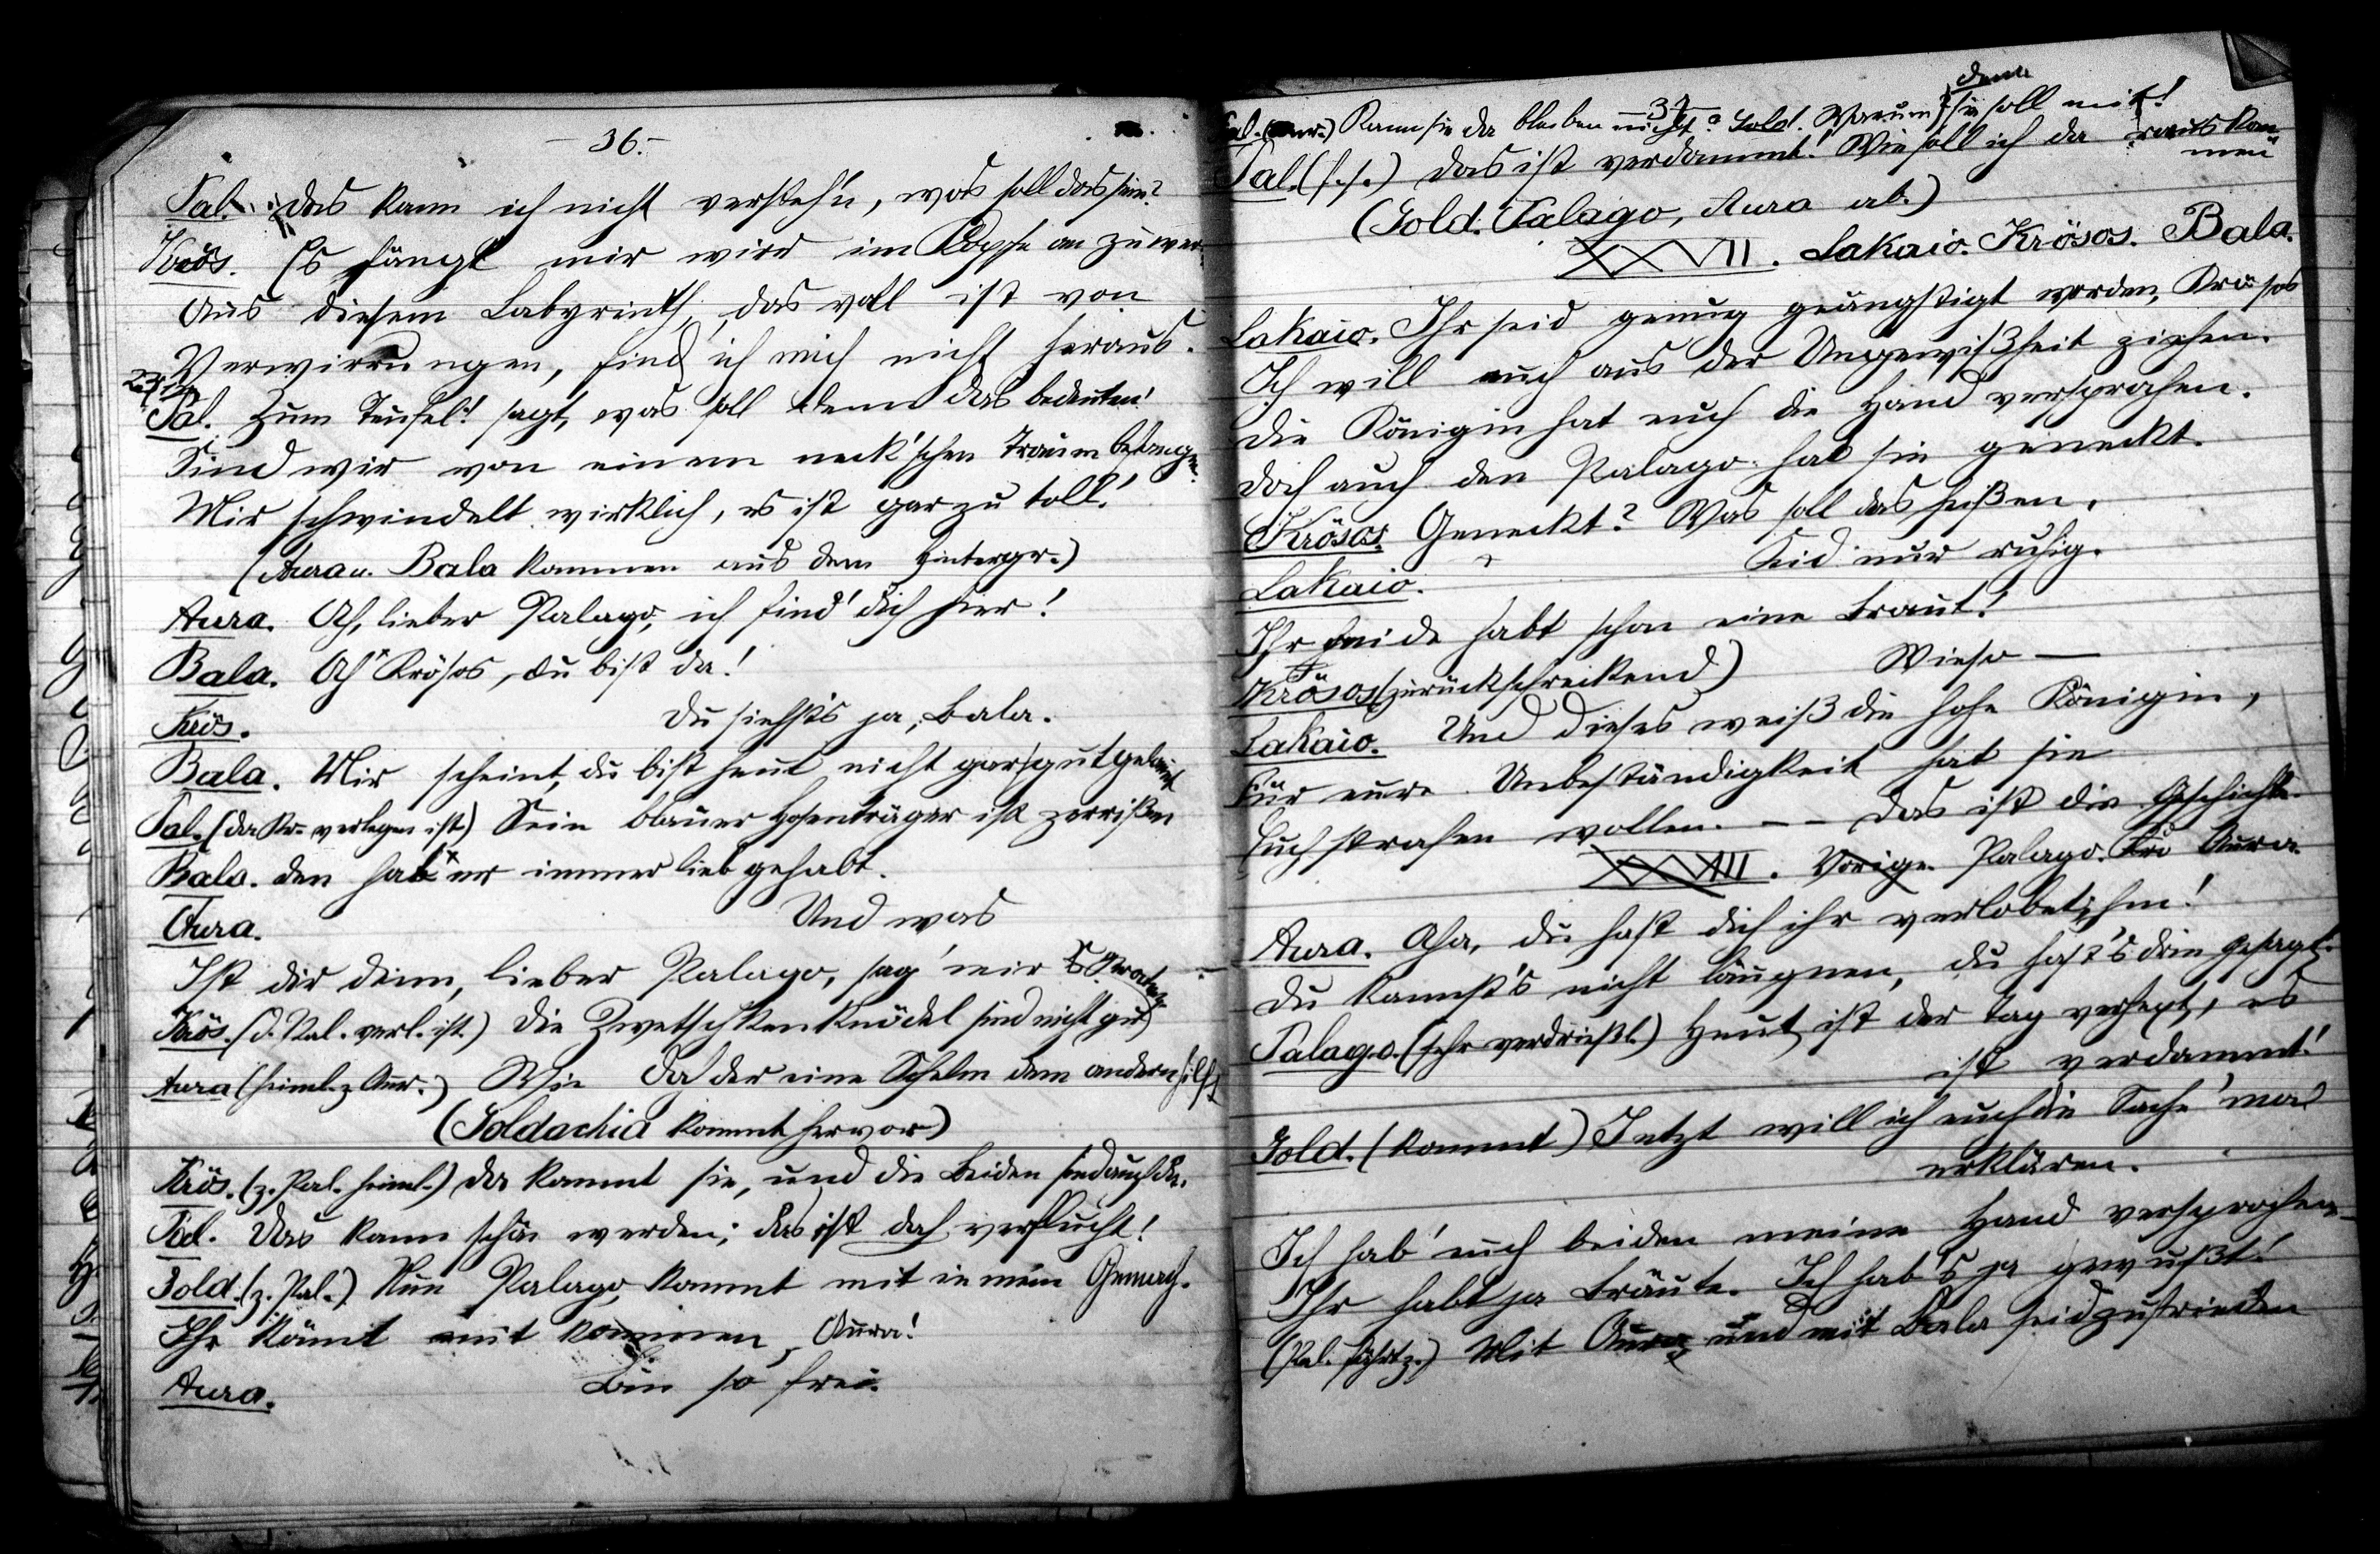 - 36. -
Pal. Das kann ich nicht versteh'n, was soll das sein?
Krös. Es fängt mir wirr im Kopfe an zu wer-
Aus diesem Labyrinth, das voll ist von
Verwirrungen, find ich mich nicht heraus.
Pal. Zum Teufel! sagt, was soll denn das bedeuten!
Sind wir von einem neck'schen Traum befangen?
Mir schwindelt wirklich, es ist gar zu toll!
(Aura u. Bala kommen aus dem Hintergr.)
Aura. Ach, lieber Palago, ich find' dich hier!
Bala. Ach Krösos, du bist da!
Krös. Du siehst's ja, Bala.
Bala. Mir scheint, du bist heut nicht gar gut gelaunt
Pal. (da Kr. verlegen ist) Sein blauer Hosenträger ist zerrißen
Bala. Den hab er immer lieb gehabt.
Aura. Und was
Ist dir denn, lieber Palago, sag' mir
Krös. (d. Pal. verl. ist.) Die Zwetschkenknödel sind nicht gut
Aura (heiml. z Aur.) Wie da der eine Schelm dem andern hilft
(Goldachia kommt hervor)
Krös. (z. Pal. heiml.) Da kommt sie, und die Beiden sind auch da.
Pal. Das kann schön werden; das ist doch verflucht!
Gold. (z. Pal.) Nun Palago, kommt mit in mein Gemach.
Ihr könnt mit kommen, Aura!
Aura. Bin so frei.
37
Pal. (Aur.) Kann sie da bleiben nicht? Gold. Warum denn sie soll mit!
Pal. (f. s.) Das ist verdammt! Wie soll ich da raus kom-
men
(Gold. Palago, Aura ab.)
XXVII. Lakaio. Krösos. Bala.
Lakaio. Ihr seid genug geängstigt worden, Krösos
Ich will euch aus der Ungewißheit ziehen.
Die Königin hat euch die Hand versprochen.
Doch auch den Palago hat sie geneckt.
Krösos. Geneckt? Was soll das heißen.
Lakaio. Seid nur ruhig.
Ihr beide habt schon eine Braut!
Krösos (zurückschreckend) Wieso —
Lakaio. Und dieses weiß die hohe Königin,
Für eure Unbeständigkeit hat sie
Euch strafen wollen. — — Das ist die Geschichte.
XXVIII. Vorige. Palago. Aura.
Aura. Aha, du hast dich ihr verlobet, hm!
Du kannst's nicht läugnen, du hast's drin gesagt.
Palago. (sehr verdrießl.) Heut ist der Tag verhext, es
ist verdammt!
Gold. (kommt) Jetzt will ich euch die Sache 'mal
erklären.
Ich hab' euch beiden meine Hand versprochen
Ihr habt ja Bräute. Ich hab's ja gewußt!
Mit Aura und mit Bala seid zufrieden